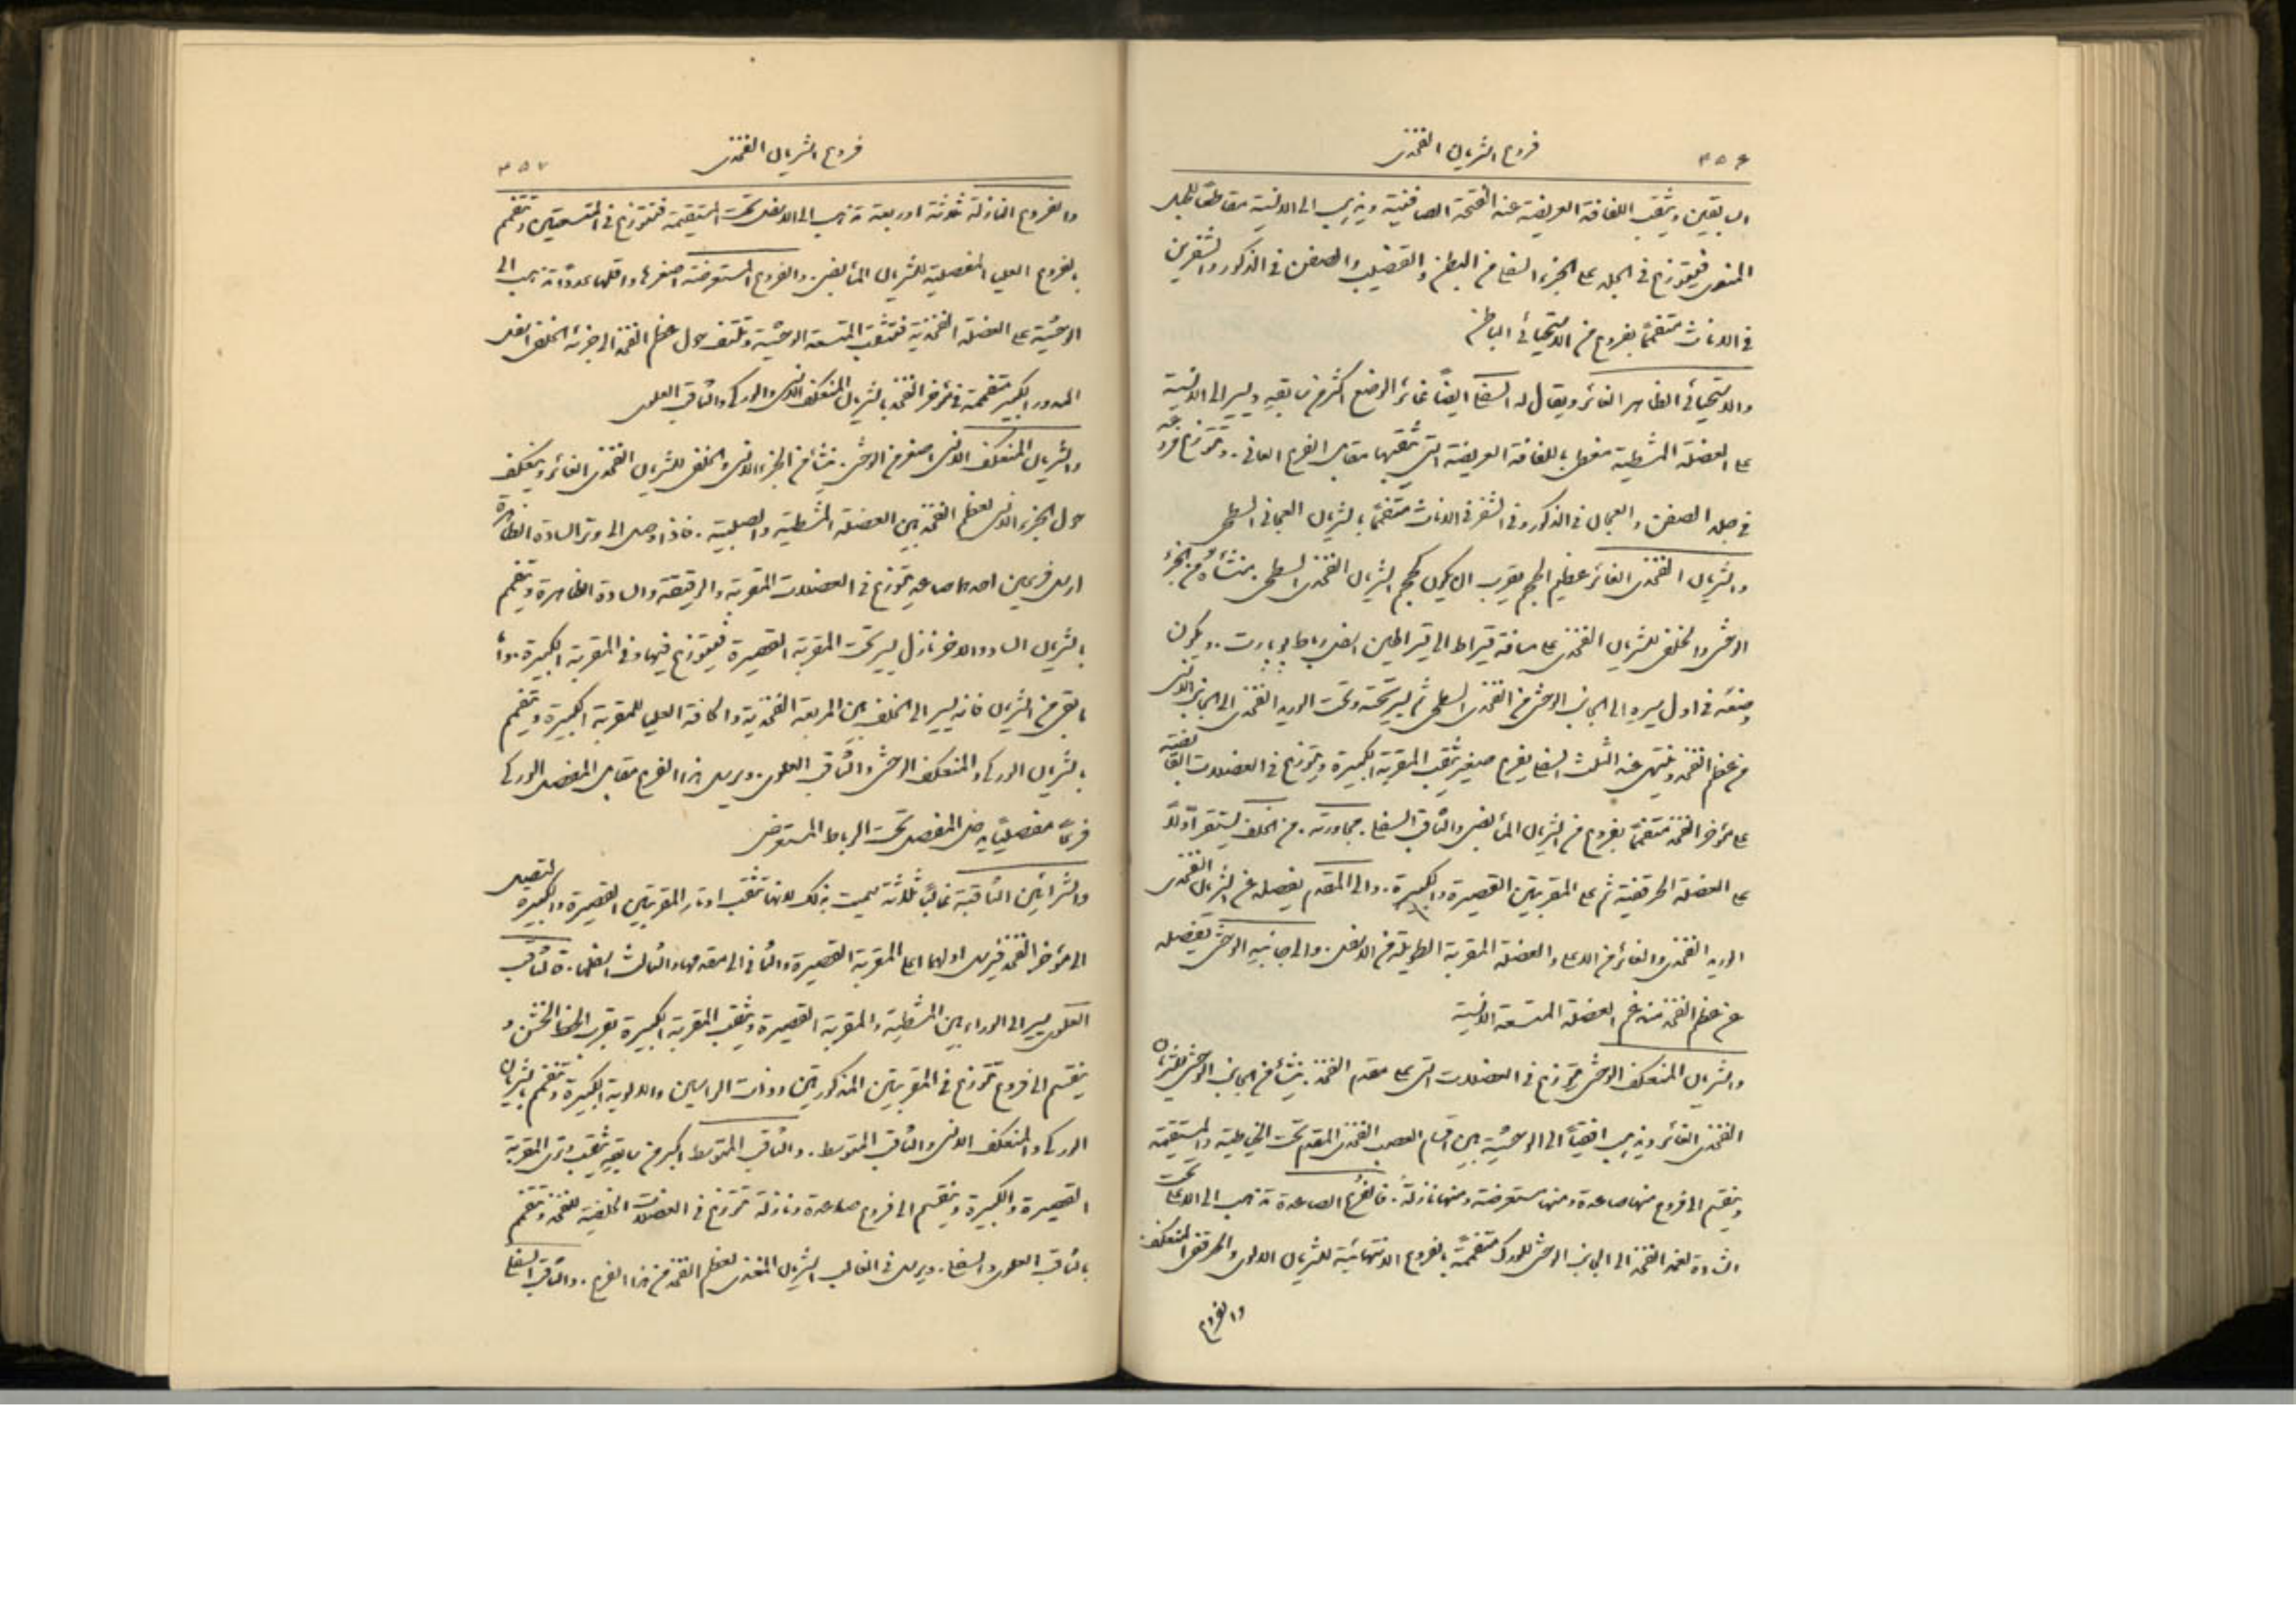 ٣٥٦ فروع الشريان الفخذي
السابقين ويثقب اللفافة العريضة عند الفتحة الصافنية ويذهب الى الانسية مقاطعًا للحبل
المنوي فيتوزع في الجلد على الجزء السفلي من البطن والقضيب والصفن في الذكور والشفرين
في الاناث متفممًا بفروع من الاستحيائي الباطن
والاستحيائي الظاهر الغائر ويقال له السفلي ايضًا غائر الوضع اكثر من سابقه ويسير الى الانسية
على العضلة المشطية مغطى باللفافة العريضة التي يثقبها مقابل الفرع العاني. وتتوزع فروعه
في جلد الصفن والعجان في الذكور وفي الشفر في الاناث متفممًا بالشريان العجاني السطحي
والشريان الفخذي الغائر عظيم الحجم يقرب ان يكون كحجم الشريان الفخذي السطحي. منشأه من الجزء
الوحشي والخلفي للشريان الفخذي على مسافة قيراط الى قيراطين اسفل رباط بوبارت. ويكون
وضعه في اول مسيره الى الجانب الوحشي من الفخذي السطحي ثم يسير تحته وتحت الوريد الفخذي الى الجانب الانسي
من عظم الفخذ وينتهي عند الثلث السفلي بفرع صغير يثقب المقربة الكبيرة ويتوزع في العضلات القابضة
على مؤخر الفخذ متفممًا بفروع من الشريان المأبضي والثاقب السفلي. مجاورته. من الخلف يستقر اولًا
على العضلة الحرقفية ثم على المقربتين القصيرة والكبيرة. والى المقدم يفصله عن الشريان الفخذي
الوريد الفخذي والغائر من الاعلى والعضلة المقربة الطويلة من الاسفل. والى جانبه الوحشي يفصله
عن عظم الفخذ منشأ العضلة المتسعة الانسية
والشريان المنعكف الوحشي يتوزع في العضلات التي على مقدم الفخذ. ينشأ من الجانب الوحشي للشريان
الفخذي الغائر ويذهب افقيًا الى الوحشية بين اقسام العصب الفخذي المقدم تحت الخياطية والمستقيمة
وينقسم الى فروع منها صاعدة ومنها مستعرضة ومنها نازلة. فالفروع الصاعدة تذهب الى الاعلى تحت
الشادة لغمد الفخذ الى الجانب الوحشي للورك متفممة بالفروع الانتهائية للشريان الالوي والحرقفي المنعكف
والفروع
فروع الشريان الفخذي ٣٥٧
والفروع النازلة ثلاثة او اربعة تذهب الى الاسفل تحت المستقيمة فتتوزع في المتسعتين وتتفمم
بالفروع العليا المفصلية للشريان المأبضي. والفروع المستعرضة اصغرها واقلها عددًا تذهب الى
الوحشية على العضلة الفخذية فتثقب المتسعة الوحشية وتلتف حول عظم الفخذ الى جزئه الخلفي اسفل
المدور الكبير متفممة في مؤخر الفخذ بالشريان المنعكف الانسي والوركي والثاقب العلوي
والشريان المنعكف الانسي اصغر من الوحشي. ينشأ من الجزء الانسي والخلفي للشريان الفخذي الغائر وينعكف
حول الجزء الانسي لعظم الفخذ بين العضلة المشطية والصلبية. فاذا وصل الى وتر السادة الظاهرة
ارسل فرعين احدهما صاعد يتوزع في العضلات المقربة والرقيقة والسادة الظاهرة ويتفمم
بالشريان الساد والاخر نازل يسير تحت المقربة القصيرة فيتوزع فيها وفي المقربة الكبيرة. وما
بقي من الشريان فانه يسير الى الخلف بين المربعة الفخذية والحافة العليا للمقربة الكبيرة ويتفمم
بالشريان الوركي والمنعكف الوحشي والثاقب العلوي. ويرسل هذا الفرع مقابل المفصل الوركي
فرعًا مفصليًا يدخل المفصل تحت الرباط المستعرض
والشرايين الثاقبة غالبًا ثلاثة سميت بذلك لانها تثقب اوتار المقربتين القصيرة والكبيرة لتصل
الى مؤخر الفخذ فيرسل اولها اعلى المقربة القصيرة والثاني الى مقدمها والثالث اسفلها. فالثاقب
العلوي يسير الى الوراء بين المشطية والمقربة القصيرة ويثقب المقربة الكبيرة بقرب الخط الخشن و
ينقسم الى فروع تتوزع في المقربتين المذكورتين وذات الراسين والالوية الكبيرة وتتفمم بالشريان
الوركي والمنعكف الانسي والثاقب المتوسط. والثاقب المتوسط اكبر من سابقه يثقب وتري المقربة
القصيرة والكبيرة وينقسم الى فروع صاعدة ونازلة تتوزع في العضلات الخلفية للفخذ وتتفمم
بالثاقب العلوي والسفلي. ويرسل في الغالب الشريان المغذي لعظم الفخذ من هذا الفرع. والثاقب السفلي